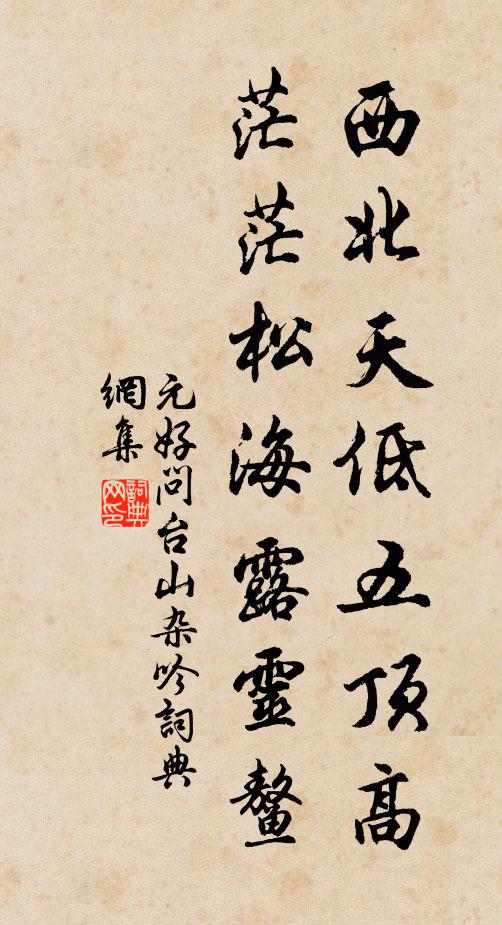 西北天低五顶高
茫茫松海露靈鰲
元好问台山杂吟詞典
網集
詞典網印